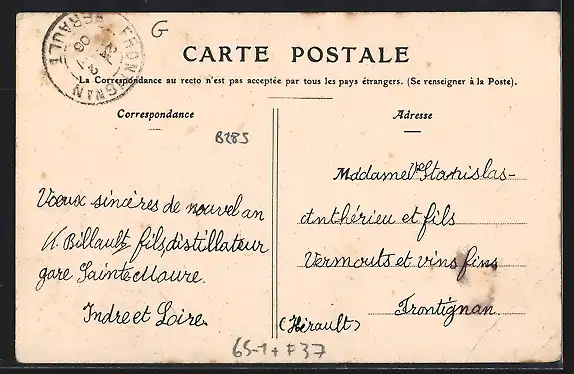 G
FRONTIGNAN
HERAULT
CARTE POSTALE
La Correspondance au recto n'est pas acceptée par tous les pays étrangers. (Se renseigner à la Poste).
Correspondance
B285
Vœux sincères de nouvel an
Billault fils, distillateur
gare Sainte Maure.
Indre et Loire.
Adresse
Maddame Vve Stanislas-
Anthérieu et fils
Vermouts et vins fins
Frontignan.
(Hérault)
65-1+F37